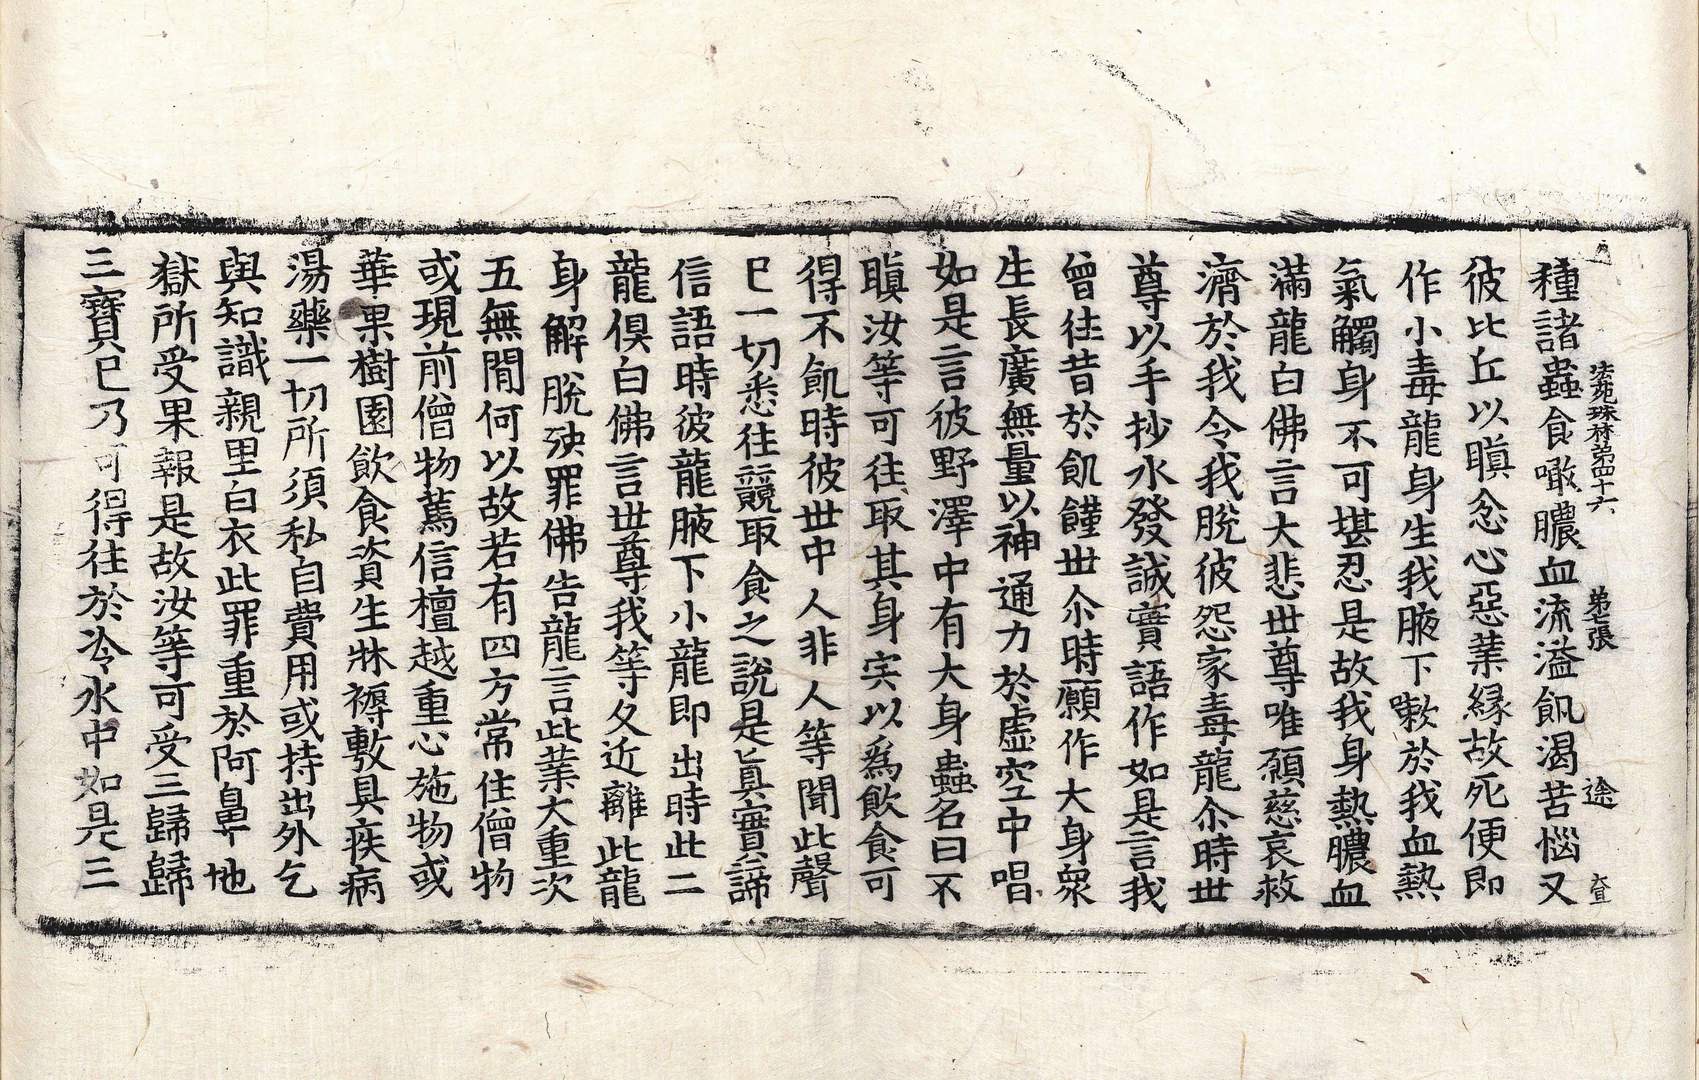 法苑珠林第四十六 第七張 途
種諸蟲食噉膿血流溢飢渴苦惱又
彼比丘以瞋忿心惡業緣故死便即
作小毒龍身生我腋下嗽於我血熱
氣觸身不可堪忍是故我身熱膿血
滿龍白佛言大悲世尊唯願慈哀救
濟於我令我脫彼怨家毒龍尒時世
尊以手抄水發誠實語作如是言我
曾往昔於飢饉世尒時願作大身衆
生長廣無量以神通力於虛空中唱
如是言彼野澤中有大身蟲名曰不
瞋汝等可往取其身宍以爲飲食可
得不飢時彼世中人非人等聞此聲
已一切悉往競取食之說是真實諦
信語時彼龍腋下小龍即出時此二
龍俱白佛言世尊我等久近離此龍
身解脫殃罪佛告龍言此業大重次
五無間何以故若有四方常住僧物
或現前僧物篤信檀越重心施物或
華果樹園飲食資生牀褥敷具疾病
湯藥一切所須私自費用或持出外乞
與知識親里白衣此罪重於阿鼻地
獄所受果報是故汝等可受三歸歸
三寶已乃可得往於冷水中如是三